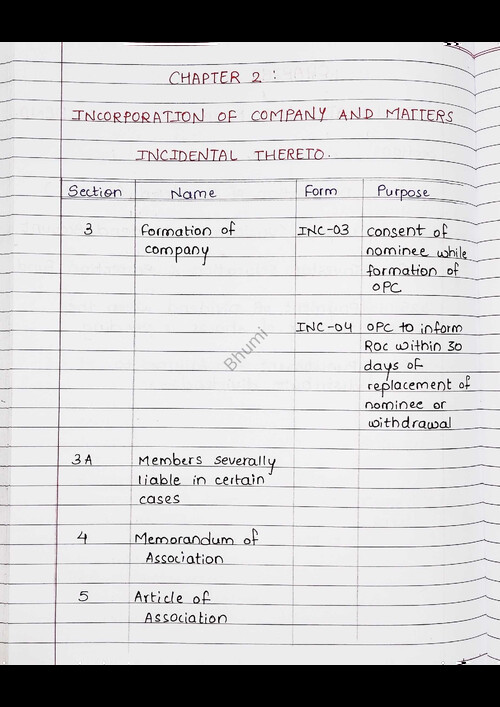 CHAPTER 2 :
INCORPORATION OF COMPANY AND MATTERS
INCIDENTAL THERETO.
Section Name Form Purpose
3 Formation of INC-03 consent of
company nominee while
formation of
OPC
INC-04 OPC to inform
ROC within 30
days of
replacement of
nominee or
withdrawal
Bhumi
3A Members severally
liable in certain
cases
4 Memorandum of
Association
5 Article of
Association